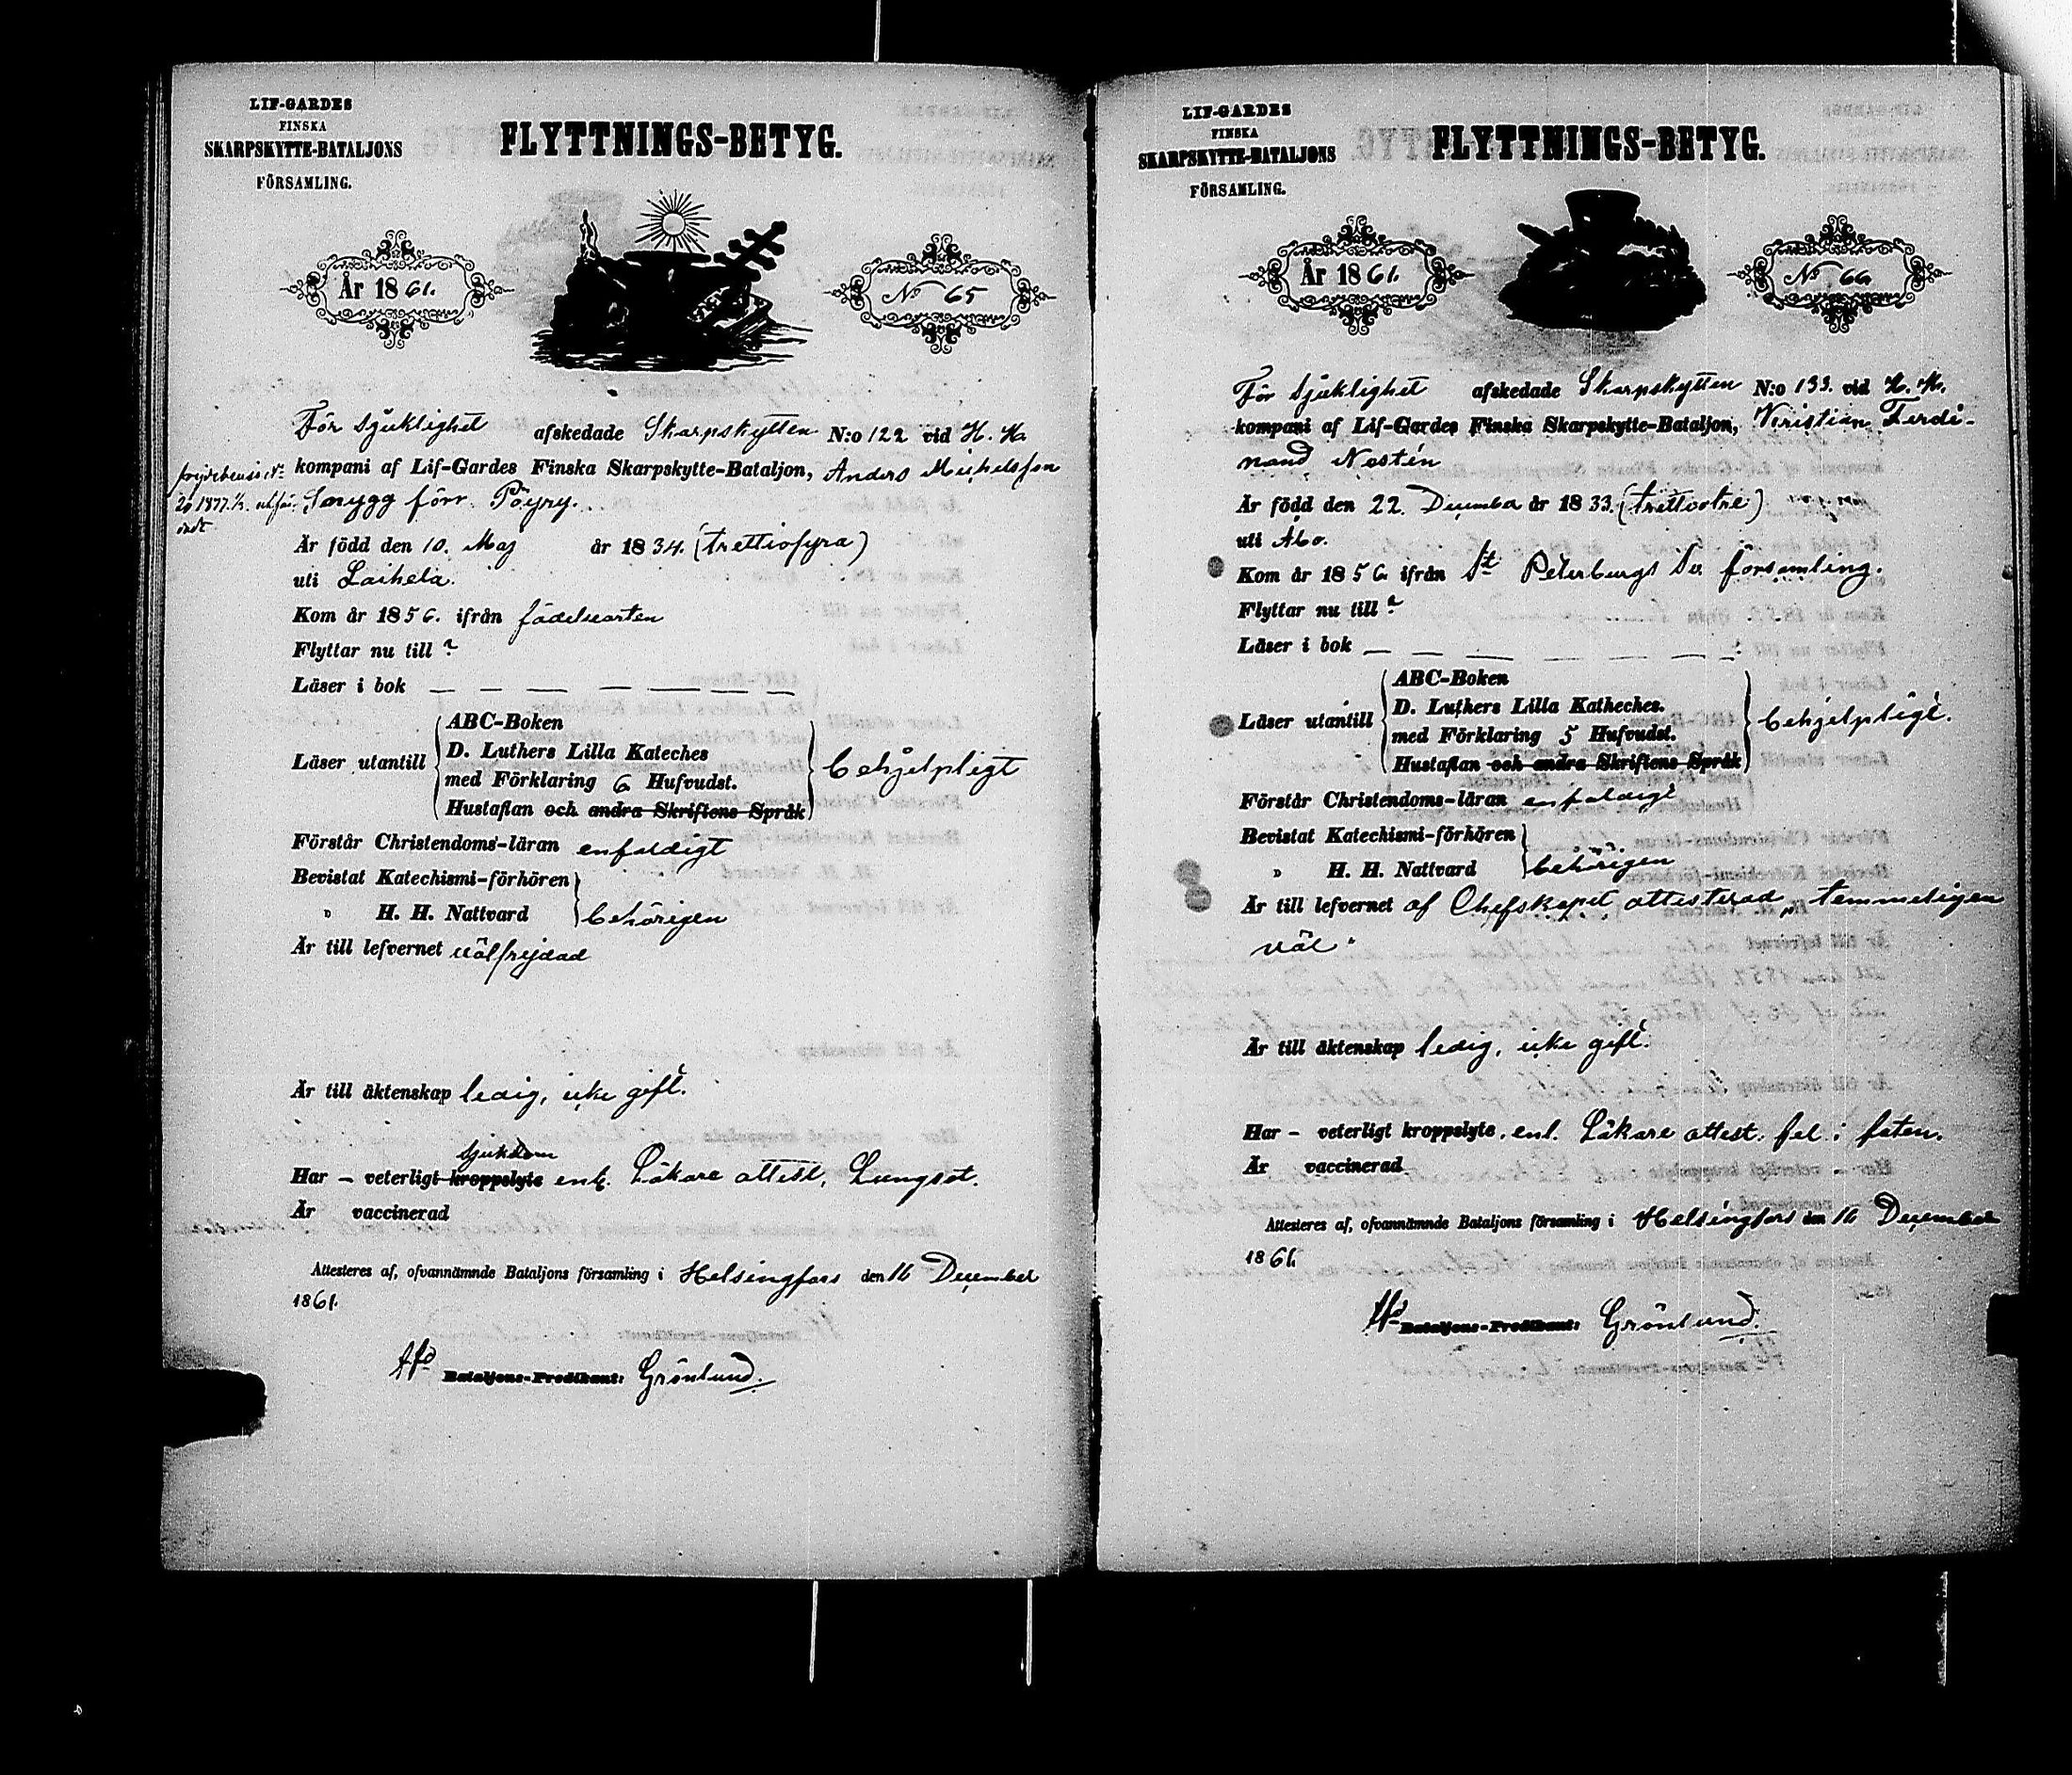 LIF-GARDES
FINSKA
SKARPSKYTTE-BATALJONS
FÖRSAMLING.
FLYTTNINGS-BETYG.
År 1861.
No 65
För Sjuklighet afskedade Skarpskytten N:o 122 vid H. K.
kompani af Lif-Gardes Finska Skarpskytte-Bataljon, Anders Michelsson
Snygg förr. Pöyry.
Är född den 10. Maj år 1834. (trettiofyra)
uti Laihela.
Kom år 1856. ifrån födelseorten
Flyttar nu till ?
Läser i bok — — — — — — —
Läser utantill
ABC-Boken
D. Luthers Lilla Kateches
med Förklaring 6 Hufvudst.
Hustaflan och andra Skriftens Språk
behjelpligt
Förstår Christendoms-läran enfaldigt
Bevistat Katechismi-förhören
" H. H. Nattvard behörigen
Är till lefvernet välfrejdad
Är till äktenskap ledig, icke gift.
sjukdom
Har – veterligt kroppslyte enl. Läkare attest, Lungsot.
Är vaccinerad
Attesteres af, ofvannämnde Bataljons församling i Helsingfors den 16 December
1861.
Bataljons-Predikant: Grönlund.
LIF-GARDES
FINSKA
SKARPSKYTTE-BATALJONS
FÖRSAMLING.
FLYTTNINGS-BETYG.
År 1861.
No 66
För Sjuklighet afskedade Skarpskytten N:o 133. vid H. K.
kompani af Lif-Gardes Finska Skarpskytte-Bataljon, Kristian Ferdi-
nand Nostén
Är född den 22. December år 1833. (trettiotre)
uti Åbo.
Kom år 1856 ifrån St Peterburgs Sv. församling.
Flyttar nu till ?
Läser i bok — — — — — — —
Läser utantill
ABC-Boken
D. Luthers Lilla Katheches.
med Förklaring 5 Hufvudst.
Hustaflan och andra Skriftens Språk
behjelpligt.
Förstår Christendoms-läran enfaldigt
Bevistat Katechismi-förhören
" H. H. Nattvard behörigen
Är till lefvernet af Chefskapet attesterad, temmeligen
väl.
Är till äktenskap ledig, icke gift.
Har – veterligt kroppslyte, enl. Läkare attest. fel i foten.
Är vaccinerad
Attesteres af, ofvannämnde Bataljons församling i Helsingfors den 16 December
1861.
Bataljons-Predikant: Grönlund.